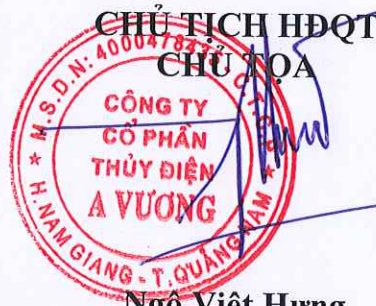 CHỦ TỊCH HĐQT
CHỦ TỌA
M.S.D.N: 4000478435 - C.T.C.P
CÔNG TY
CỔ PHẦN
THỦY ĐIỆN
A VƯƠNG
H. NAM GIANG - T. QUẢNG NAM
Ngô Việt Hưng